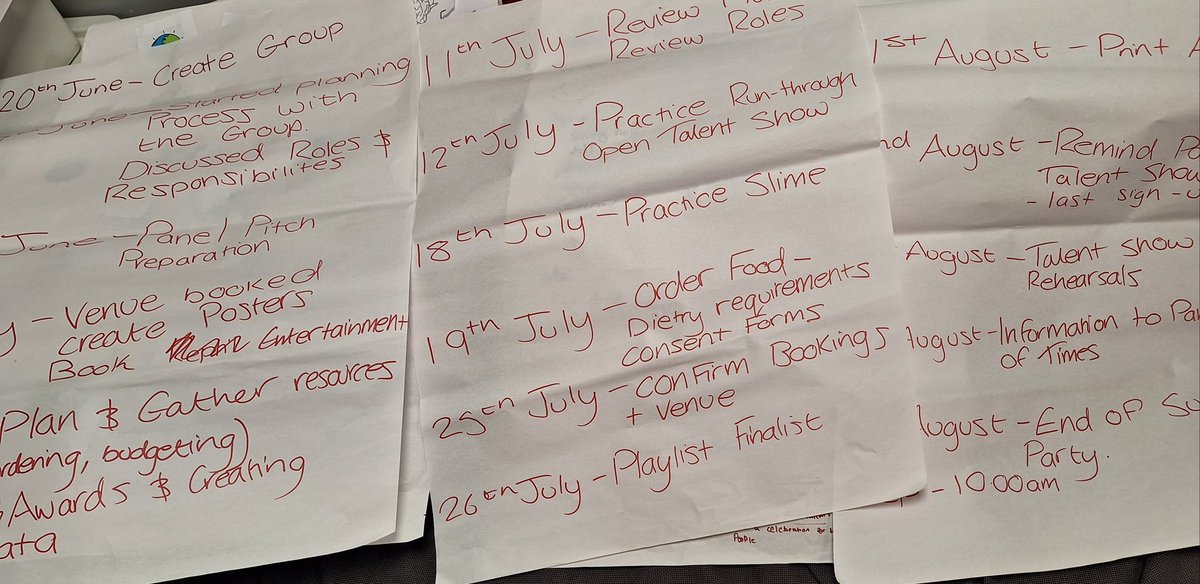 20th June - Create Group
June - Started planning
Process with
the Group.
Discussed Roles &
Responsibilites
June - Panel Pitch
Preparation
- Venue booked
create Posters
Book Entertainment
Plan & Gather resources
rdering, budgeting)
Awards & Creating
ata
11th July - Review
Review Roles
12th July - Practice Run-through
Open Talent Show
18th July - Practice Slime
19th July - Order Food -
Dietry requirements
consent forms
25th July - confirm Bookings
+ venue
26th July - Playlist Finalist
celebration
People
1st August - Print
nd August - Remind
Talent Show
- last sign -
August - Talent show
Rehearsals
August - Information to
of Times
August - End of
Party.
- 10:00am